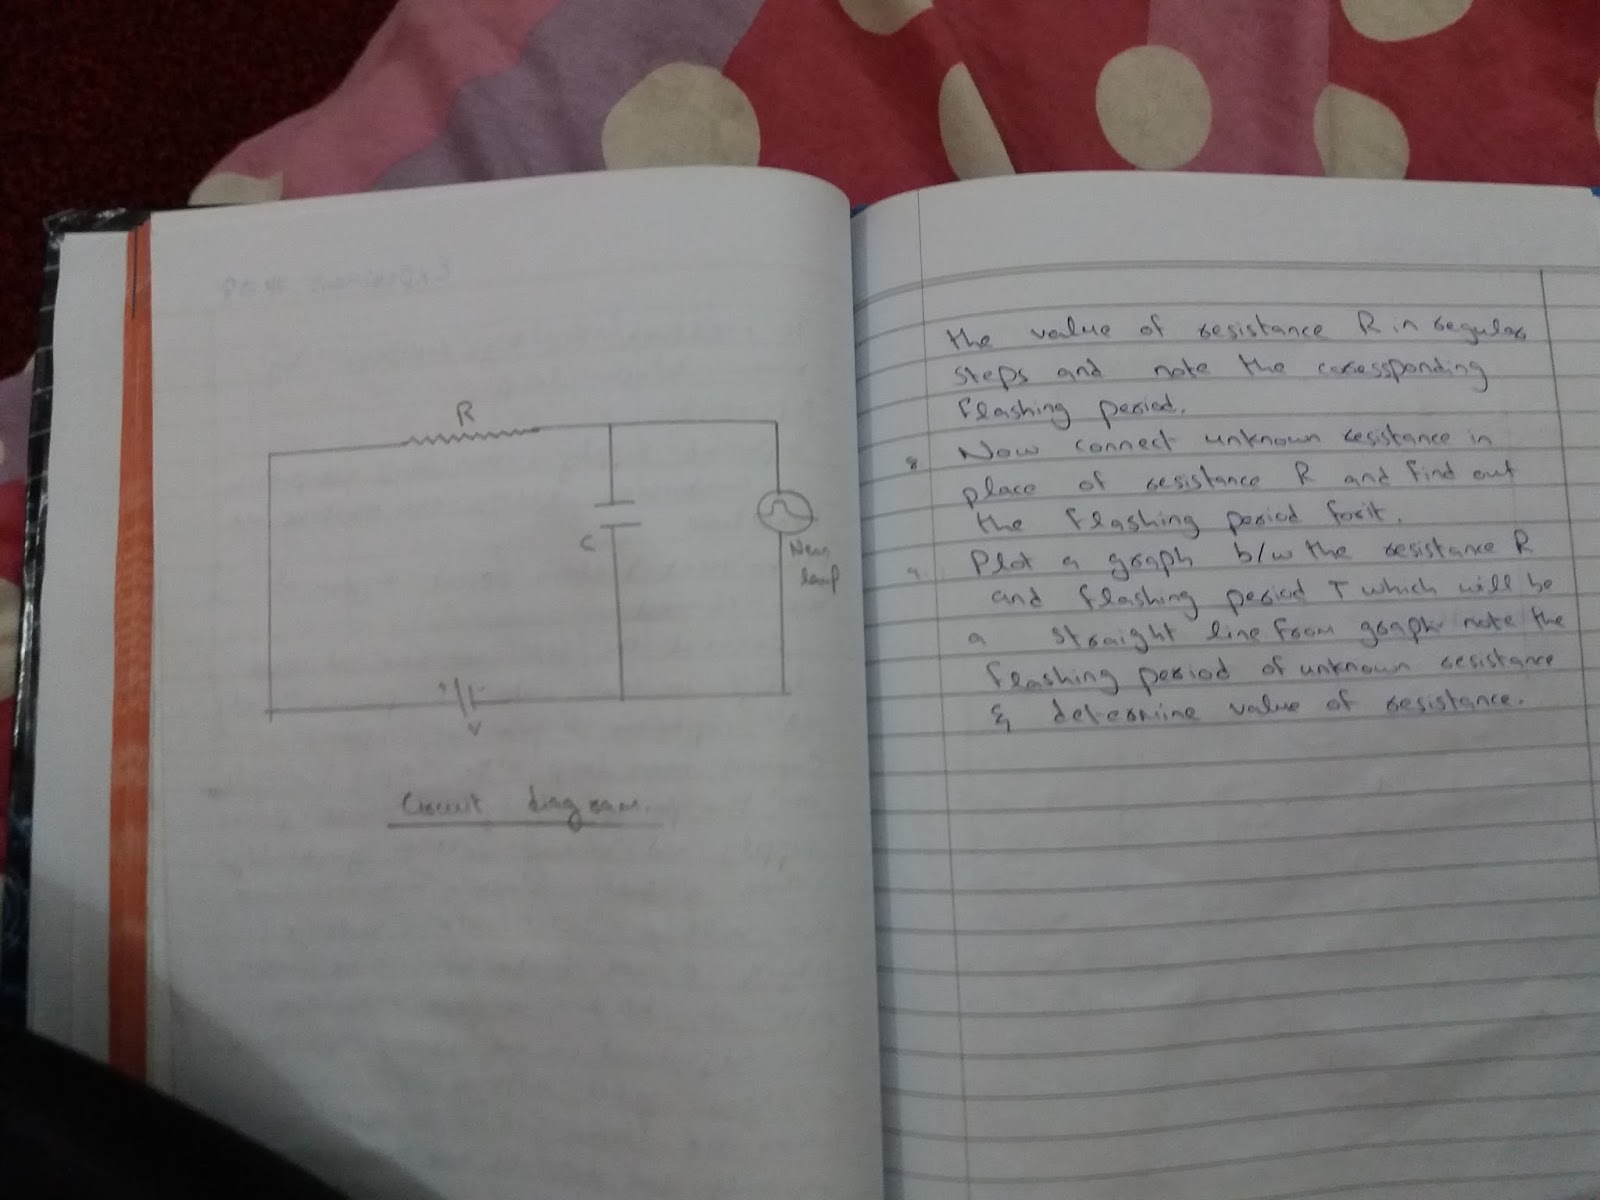 R
C
Neon
lamp
V
Circuit diagram.
the value of resistance R in regular
steps and note the coressponding
flashing period.
8 Now connect unknown resistance in
place of resistance R and find out
the flashing period for it.
9. Plot a graph b/w the resistance R
and flashing period T which will be
a straight line from graph note the
flashing period of unknown resistance
& determine value of resistance.